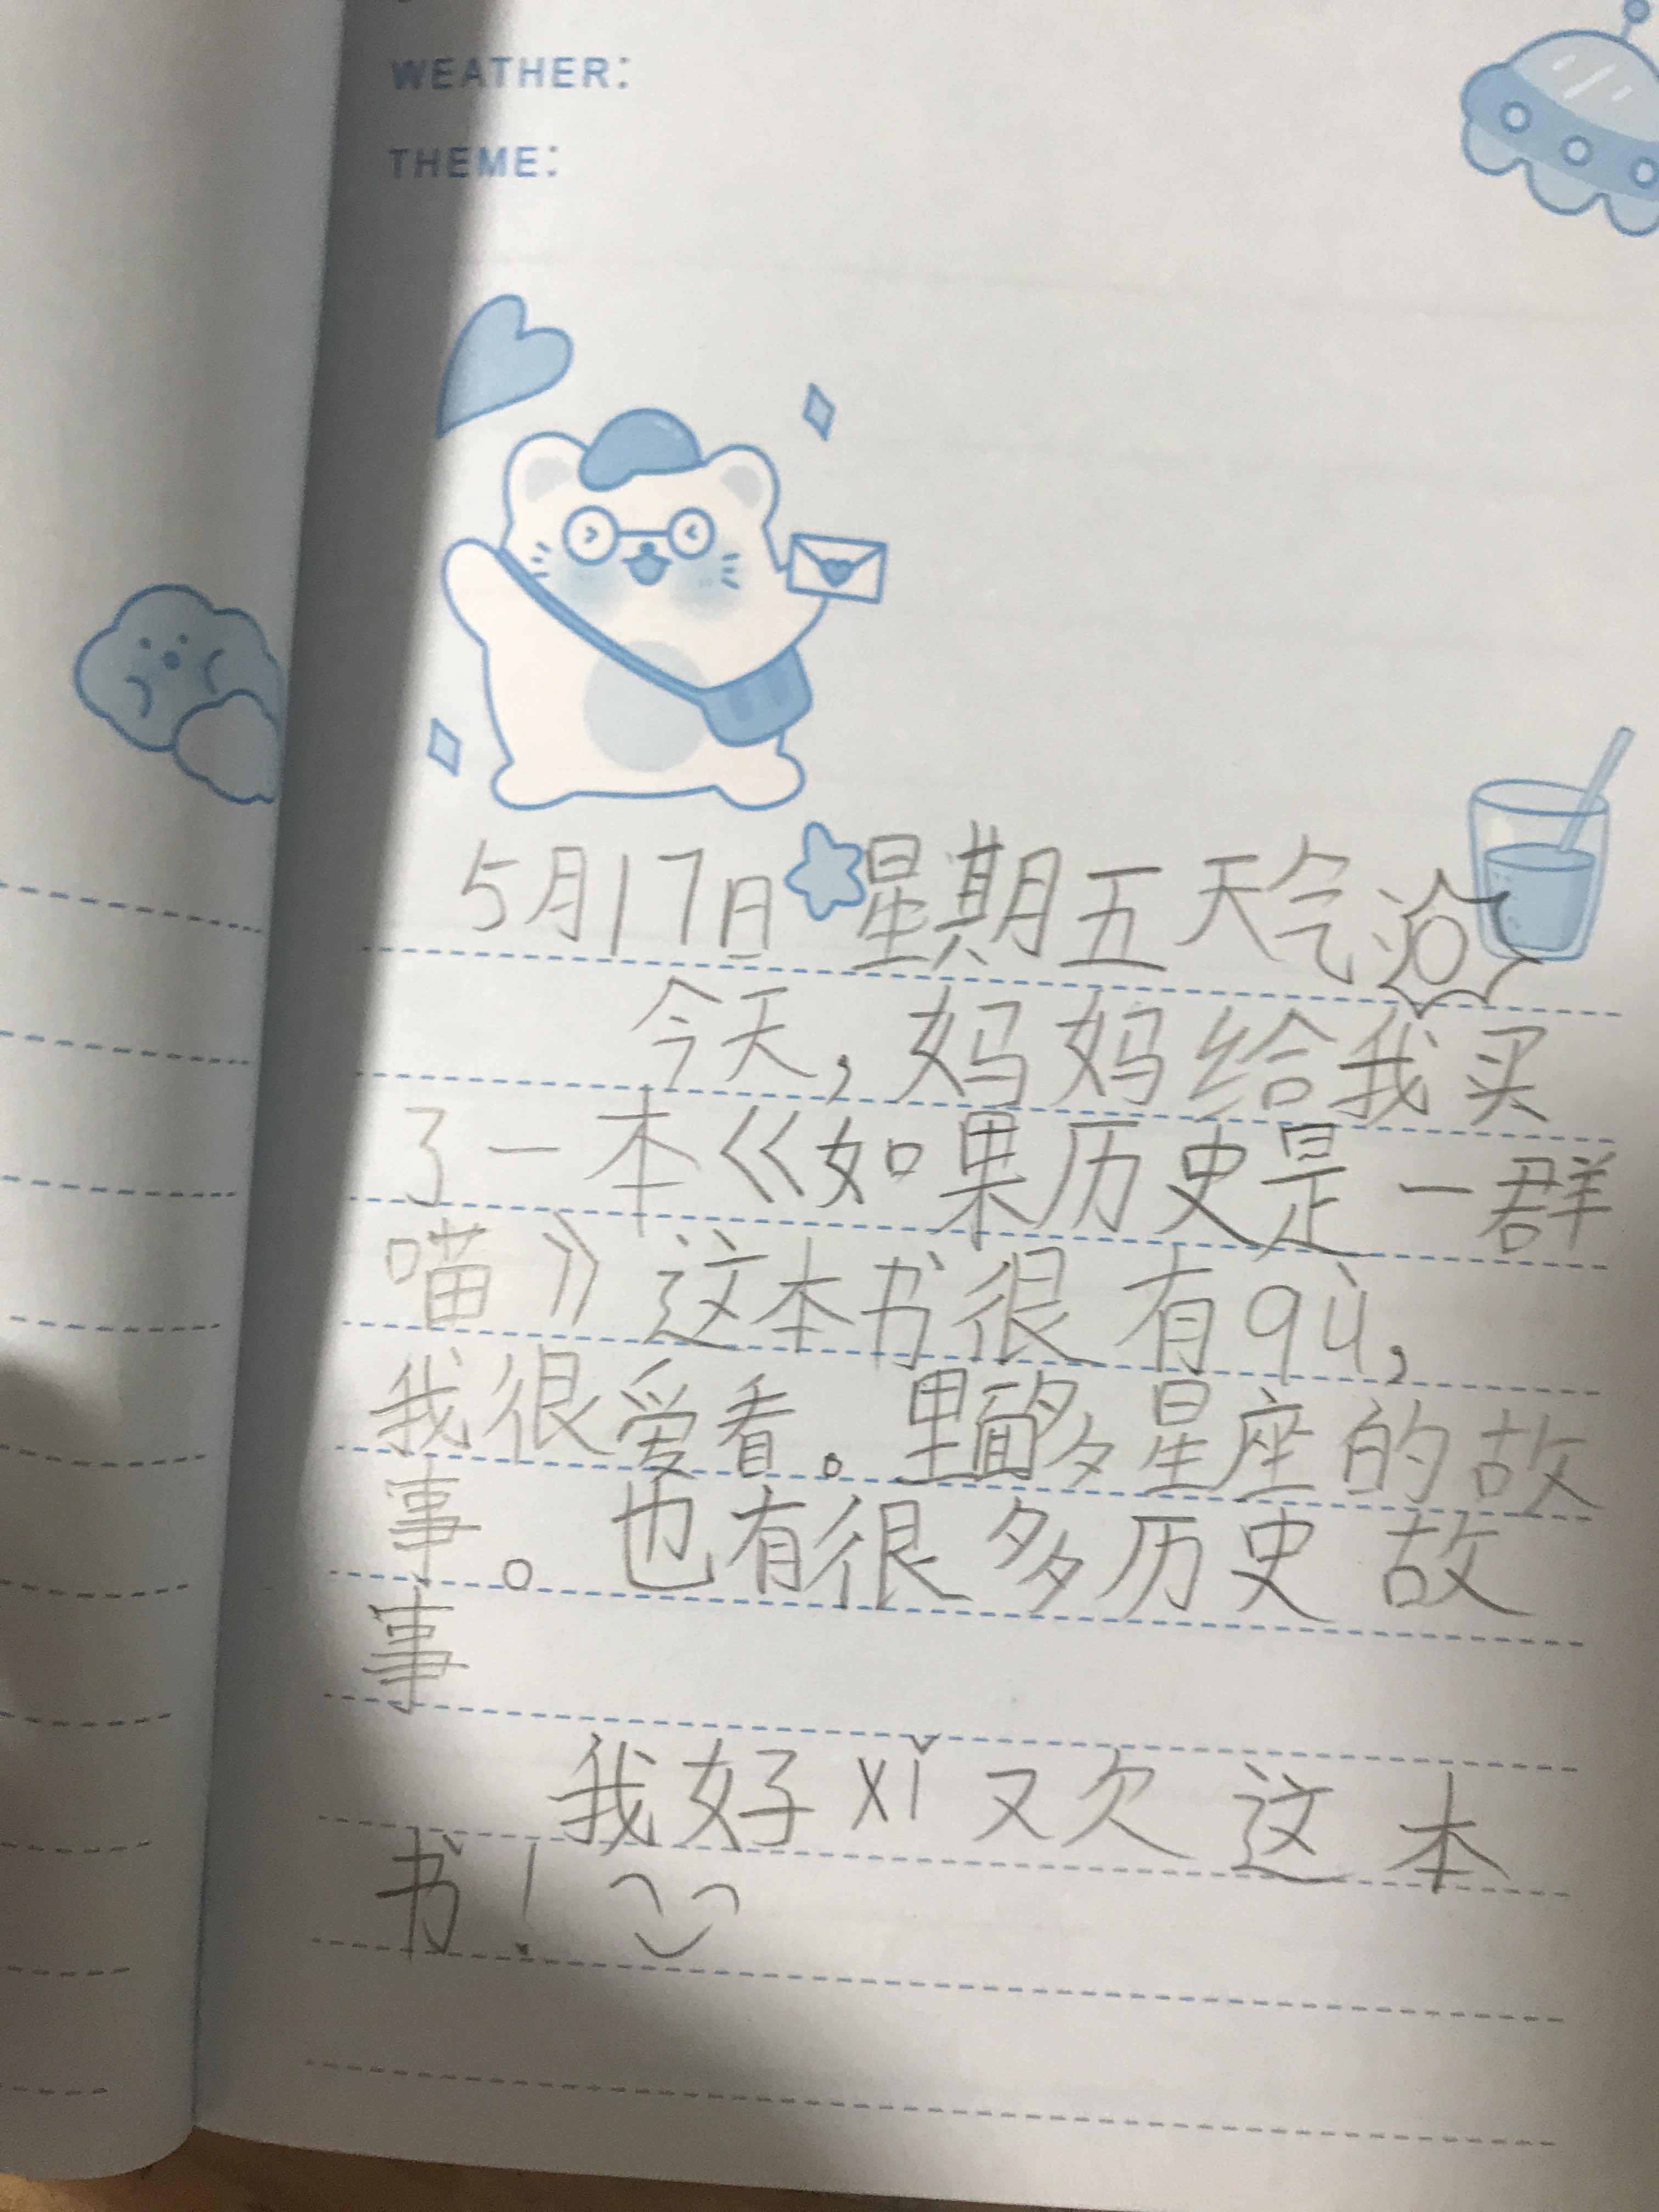 WEATHER:
THEME:
5月17日 星期五 天气
今天，妈妈给我买
了一本《如果历史是一群
喵》这本书很有qù，
我很爱看。里面多星座的故
事。也有很多历史故
事
我好xǐ欢这本
书！